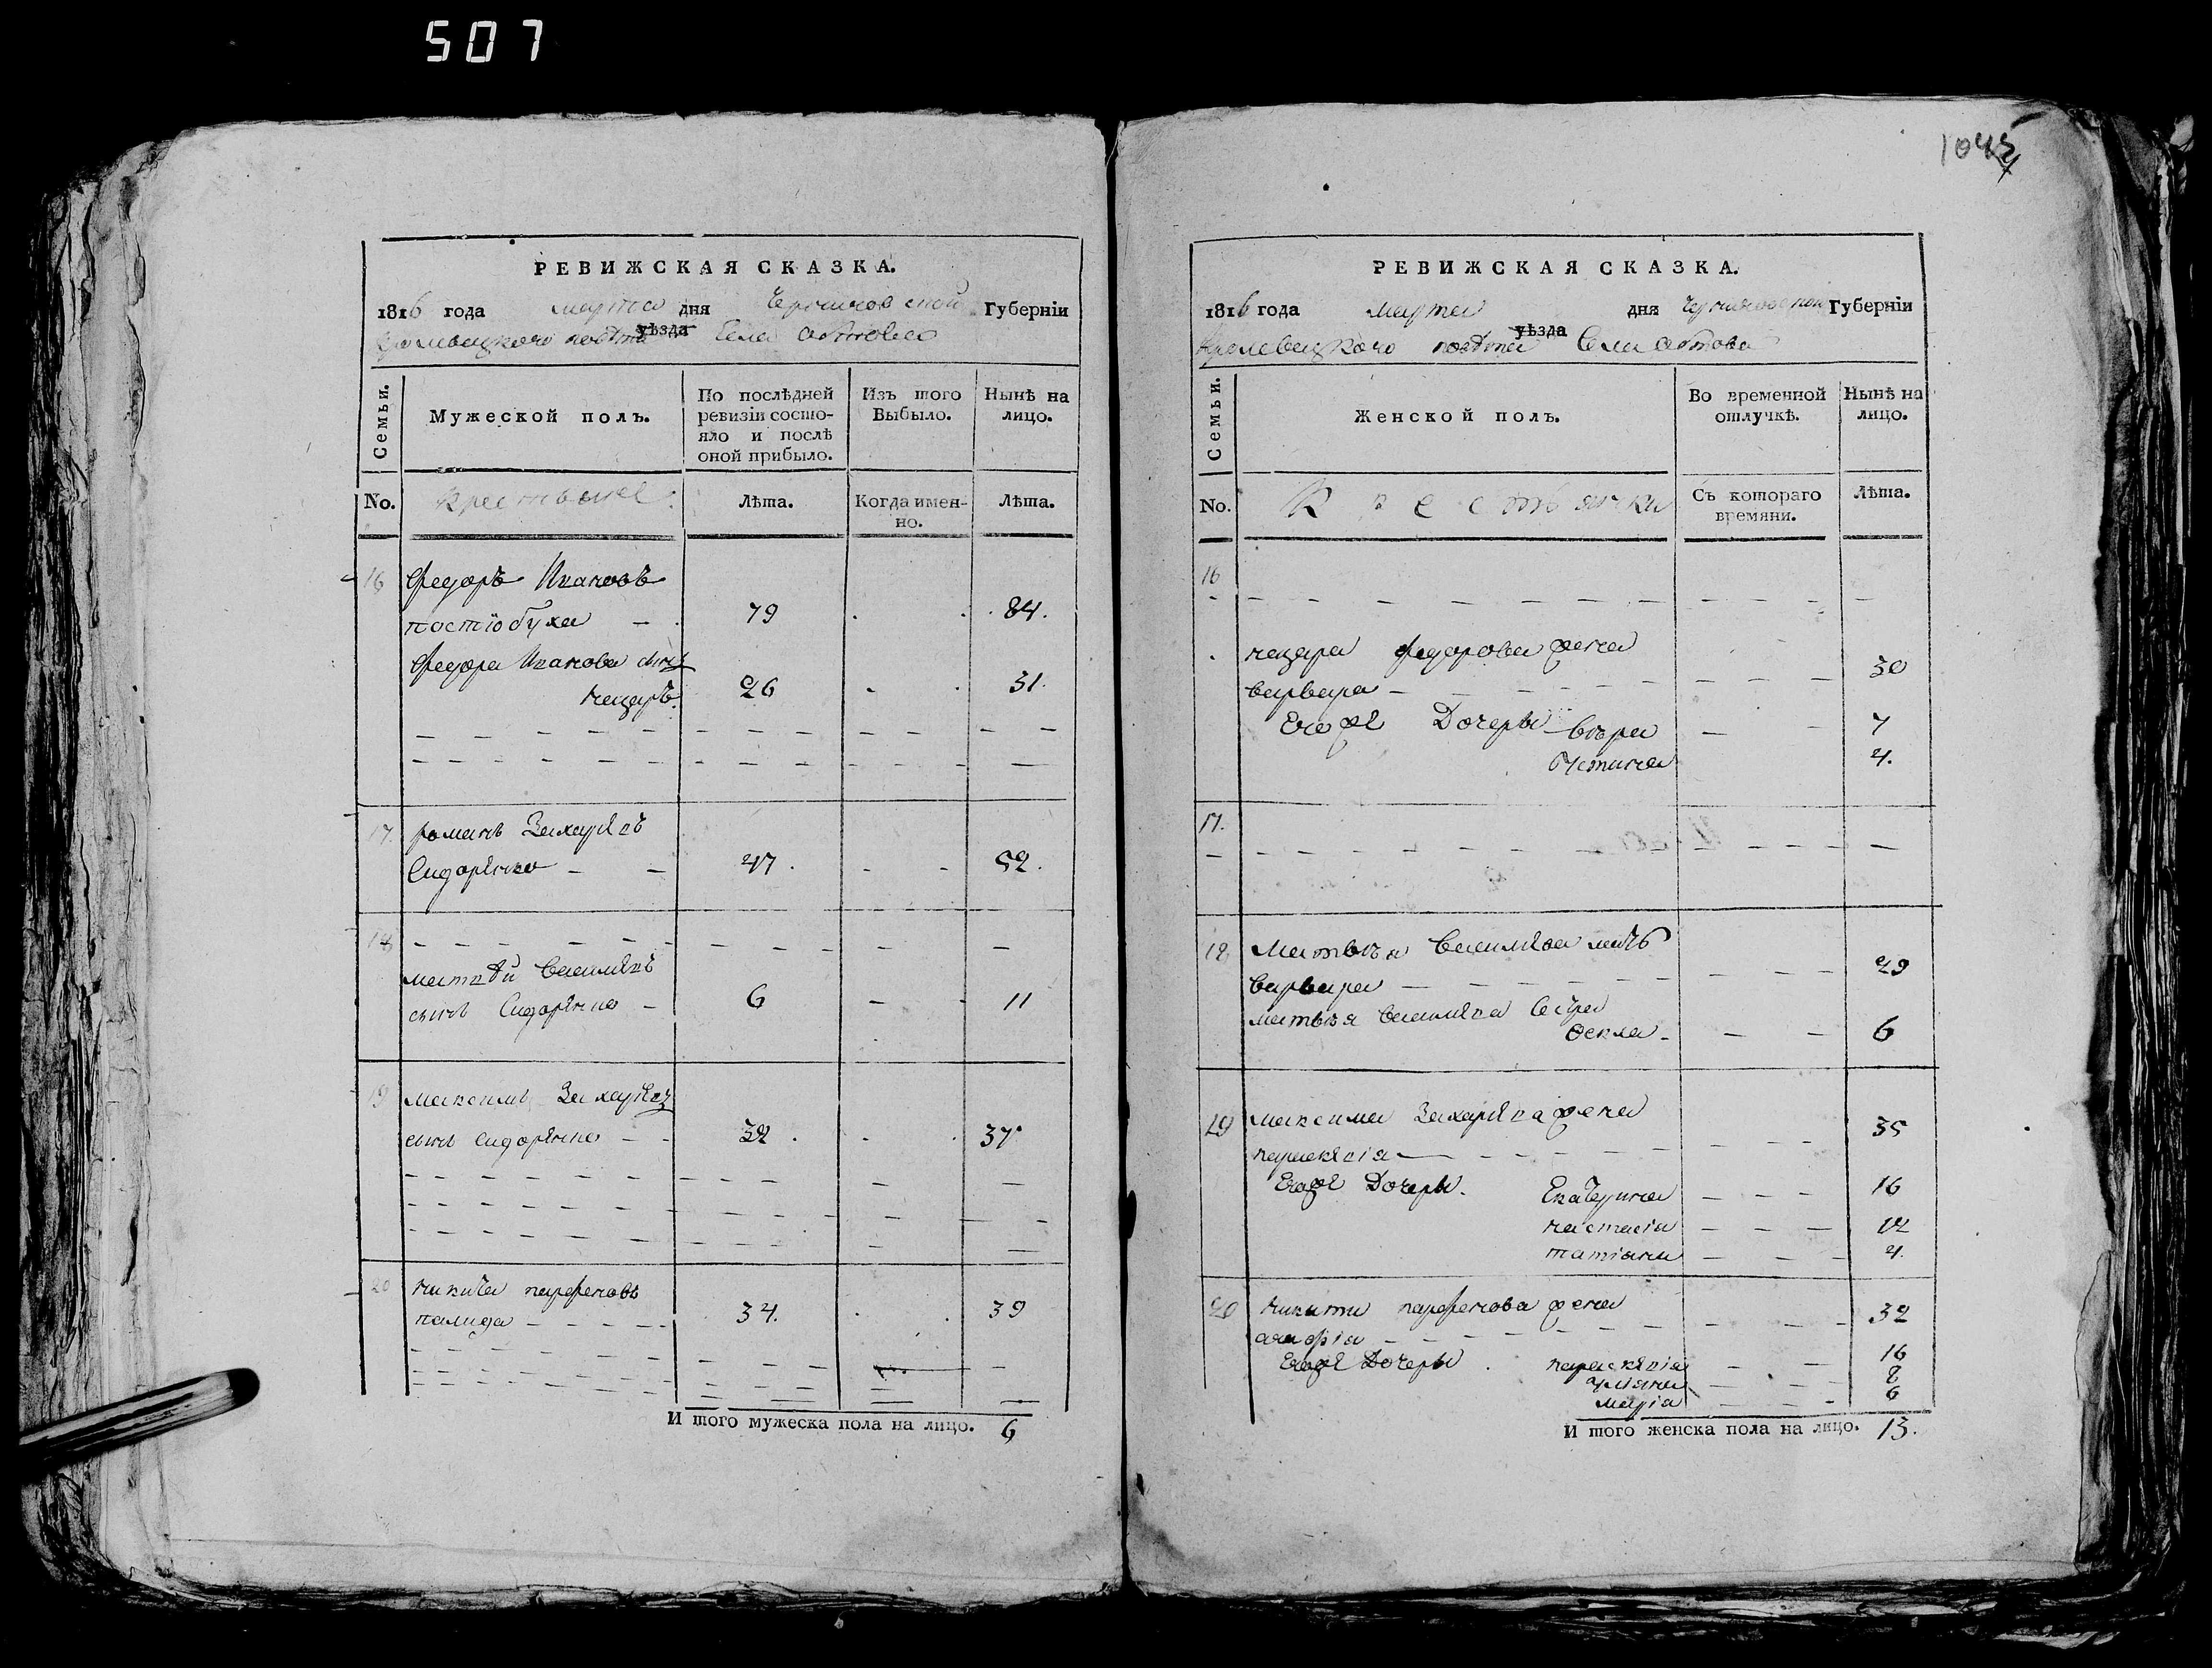 507
1045
РЕВИЖСКАЯ СКАЗКА.
1816 года марта дня Черниговской Губерніи
Кролевецкого повѣта уѣзда Села Обтова
Семьи.
Мужеской полъ.
По послѣдней ревизіи состо-
яло и послѣ
оной прибыло.
Изъ того
Выбыло.
Нынѣ на
лицо.
No.
Крестьяне
Лѣта.
Когда имен-
но.
Лѣта.
16 Федоръ Ивановъ
постобуха 79 84.
Федора Иванова сынъ
назаръ. 26 31.
17. романъ Захаріевъ
Сидоренко 47. 52.
18 матвѣй Василіевъ
сынъ Сидоренко 6 11
19 максимъ Захаріевъ
сынъ Сидоренко 32. 37.
20 никита парфеновъ
палида 34. 39
И того мужеска пола на лицо. 6
РЕВИЖСКАЯ СКАЗКА.
1816 года марта дня Черниговской Губерніи
Кролевецкого повѣта уѣзда Села Обтова
Семьи.
Женской полъ.
Во временной
отлучкѣ.
Нынѣ на
лицо.
No.
Крестьянки
Съ котораго
времяни.
Лѣта.
16
назара федорова жена
варвара 30
Егоже Дочеры Вѣра 7
Устина 4.
17.
18 Матвѣя Василіева мать
варвара 29
матвѣя василіева Сестра
Фекла 6
19 максима Захаріева жена
параскевія 35
Егоже Дочеры. Екатерина 16
настасіа 12
татіана 4.
20 никити парфенова жена
агафіа 32
Егоже Дочеры. параскевіа 16
уліана 8
маріа 6
И того женска пола на лицо. 13.